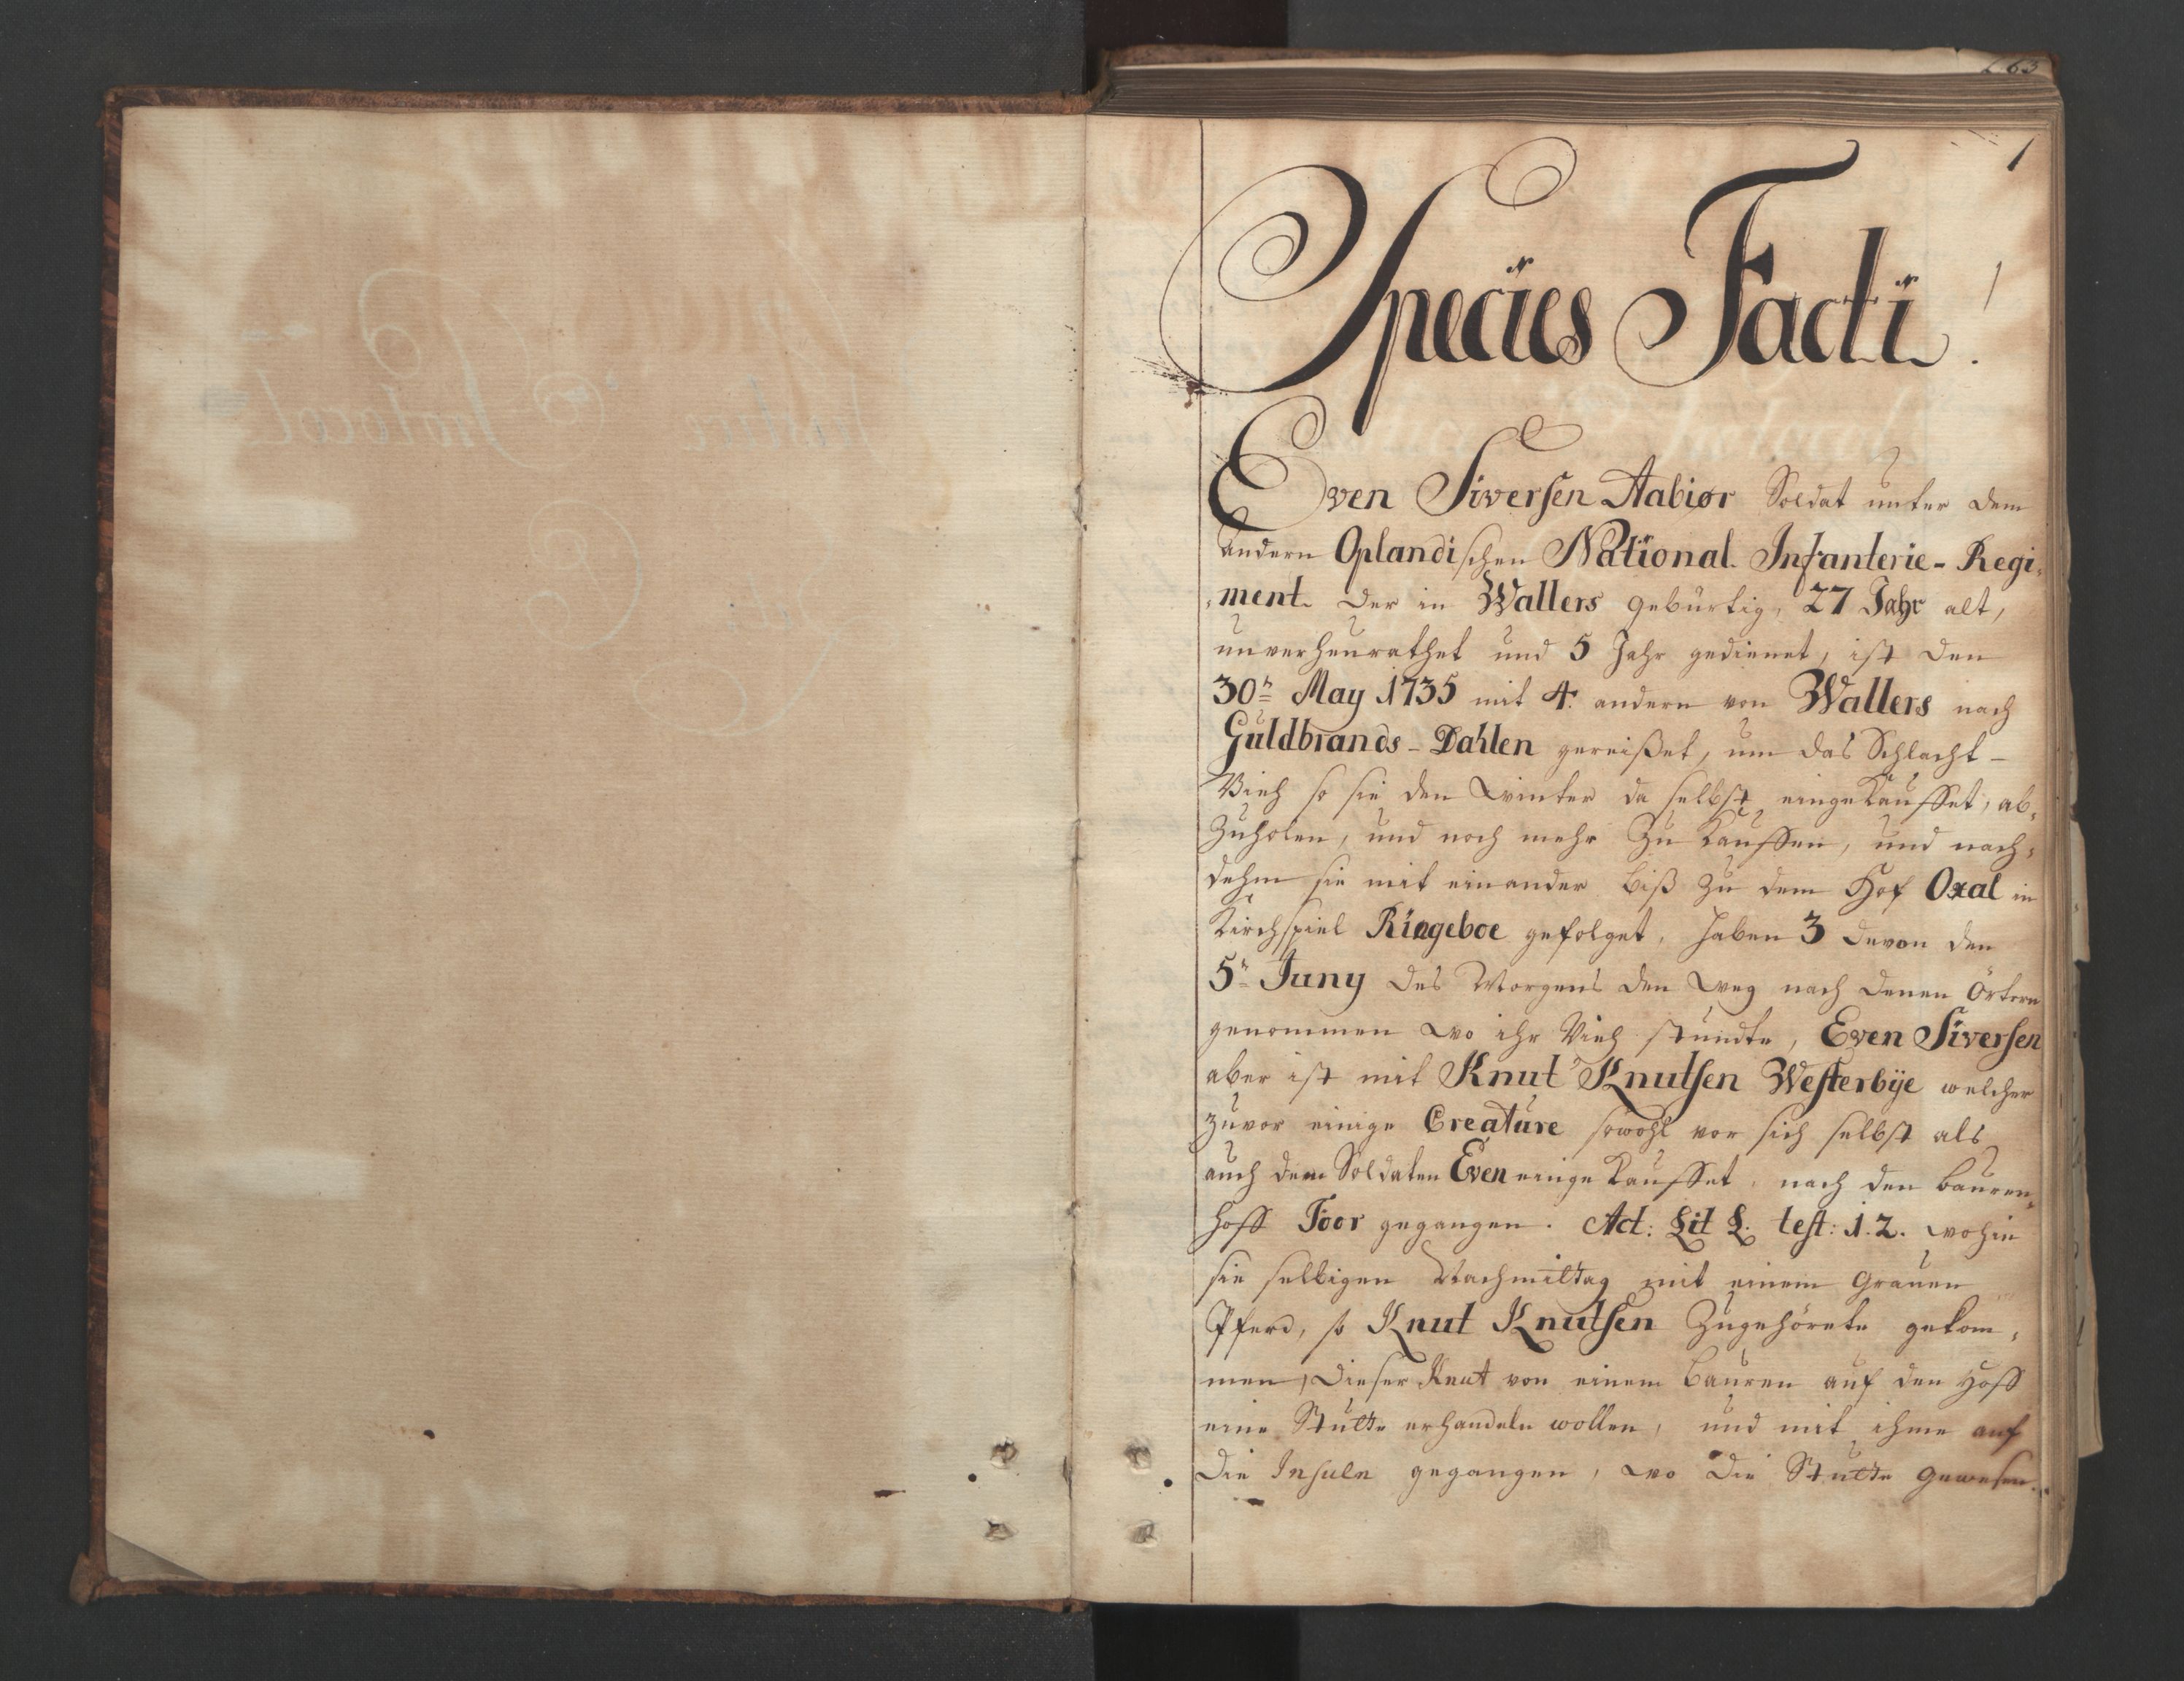 1
Species Facti.
Even Siversen Aabiør Soldat unter dem
andern Oplandischen National Infanterie-Regi-
ment. der in Wallers gebürtig, 27 Jahr alt,
unverheurathet und 5 Jahr gedienet, ist den
30n May 1735 mit 4. andern von Wallers nach
Guldbrands-Dahlen gereißet, um das Schlacht-
Vieh so sie den Winter da selbst eingekauffet, ab-
zuholen, und noch mehr zu kauffen, und nach-
dehm sie mit einander biß zu dem Hof Oxal in
Kirchspiel Ringeboe gefolget, haben 3 davon den
5n Juny des Morgens den Weg nach denen Örtern
genommen wo ihr Vieh stundte, Even Siversen
aber ist mit Knut Knutsen Westerbÿe welcher
zuvor einige Creature sowohl vor sich selbst als
auch dem Soldaten Even eingekauffet, nach den Bauren-
hoff Toor gegangen. Act: Lit L. test: 1.2. wohin
sie selbigen Nachmittag mit einem Grauen
Pferd, so Knut Knutsen Zugehörete gekom-
men, Dieser Knut von einem Bauren auf den Hoff
eine Stutte erhandeln wollen, und mit ihme auf
die Insuln gegangen, wo die Stutte gewesen.